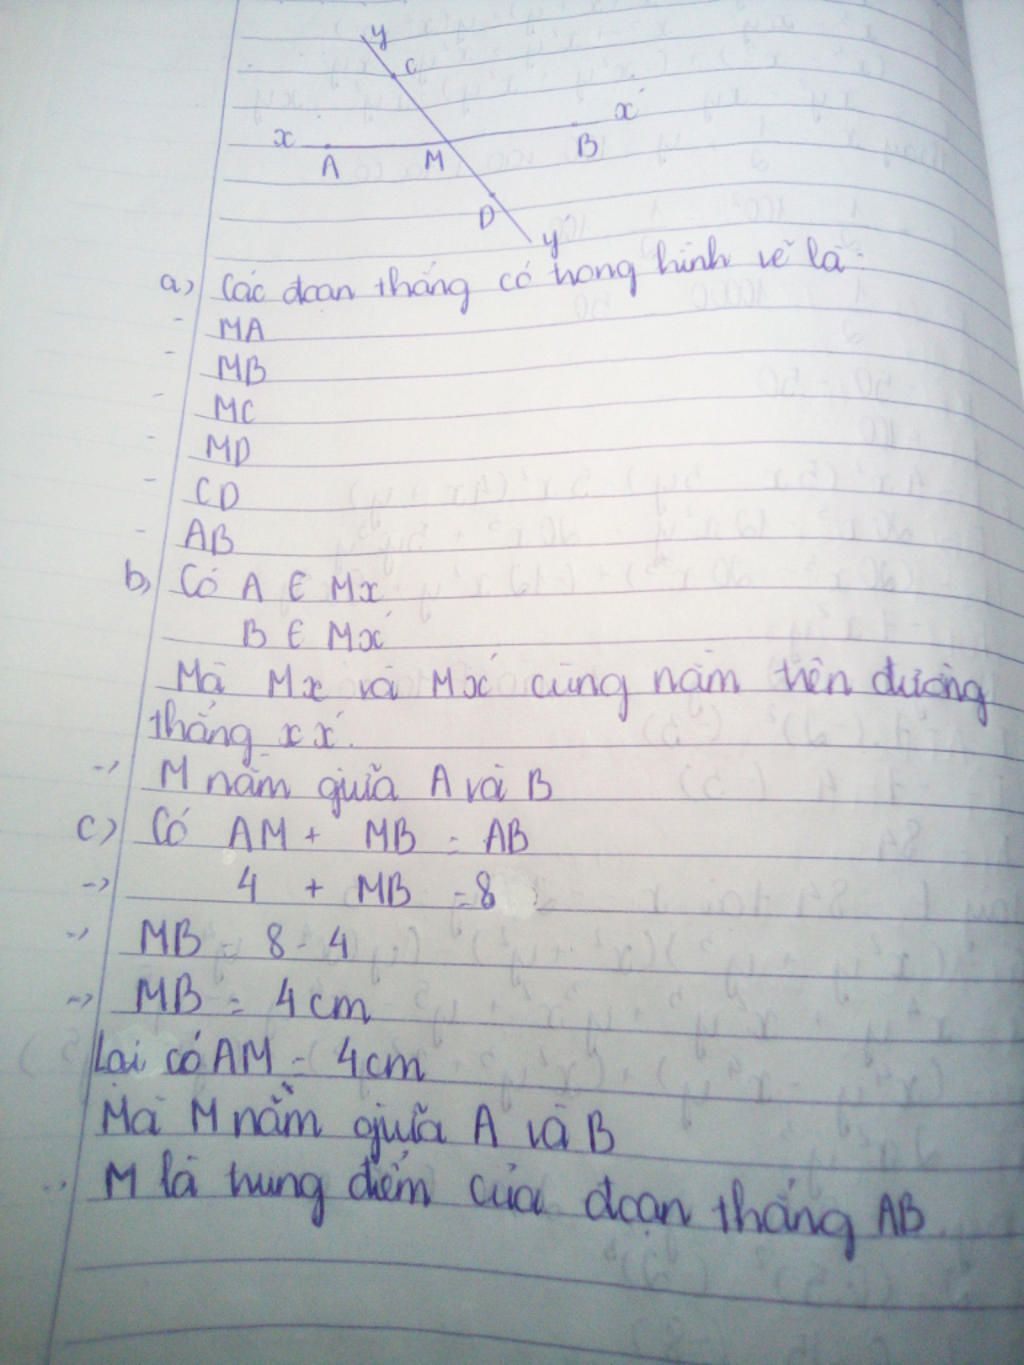 y
C
x'
x
A
M
B
D
y'
a) Các đoạn thẳng có trong hình vẽ là:
- MA
- MB
- MC
- MD
- CD
- AB
b) Có A ∈ Mx
B ∈ Mx'
Mà Mx và Mx' cùng nằm trên đường
thẳng xx'.
-> M nằm giữa A và B
c) Có AM + MB = AB
-> 4 + MB = 8
-> MB = 8 - 4
-> MB = 4cm
Lại có AM = 4cm
Mà M nằm giữa A và B
-> M là trung điểm của đoạn thẳng AB